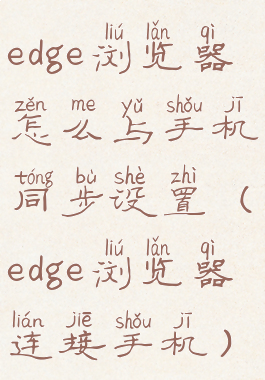 liú lǎn qì
edge浏览器
zěn me yǔ shǒu jī
怎么与手机
tóng bù shè zhì
同步设置（
liú lǎn qì
edge浏览器
lián jiē shǒu jī
连接手机）